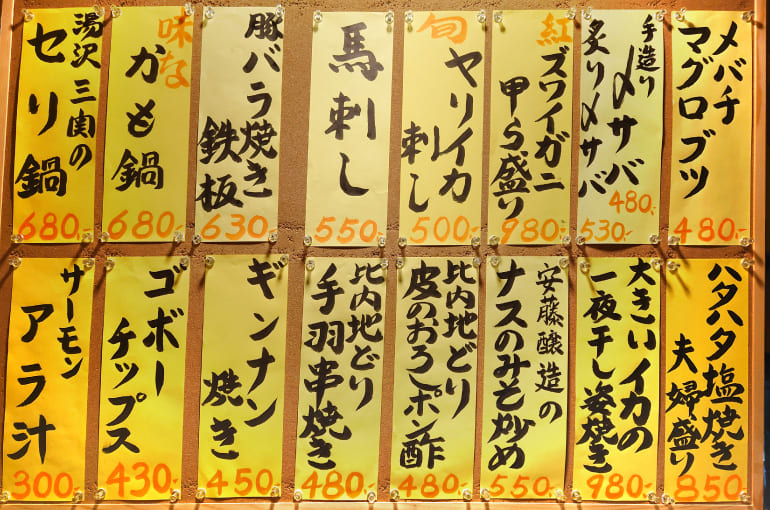 メバチ
マグロブツ
480-
手造り
〆サバ
480-
炙り〆サバ
530-
紅
ズワイガニ
甲ら盛り
980-
旬
ヤリイカ
刺し
500-
馬刺し
550-
豚バラ焼き
鉄板
630-
味な
かも鍋
680-
湯沢 三関の
セリ鍋
680-
ハタハタ塩焼き
夫婦盛り
850-
大きいイカの
一夜干し姿焼き
980-
安藤醸造の
ナスのみそ炒め
550-
比内地どり
皮のおろしポン酢
480-
比内地どり
手羽串焼き
480-
ギンナン
焼き
450-
ゴボー
チップス
430-
サーモン
アラ汁
300-